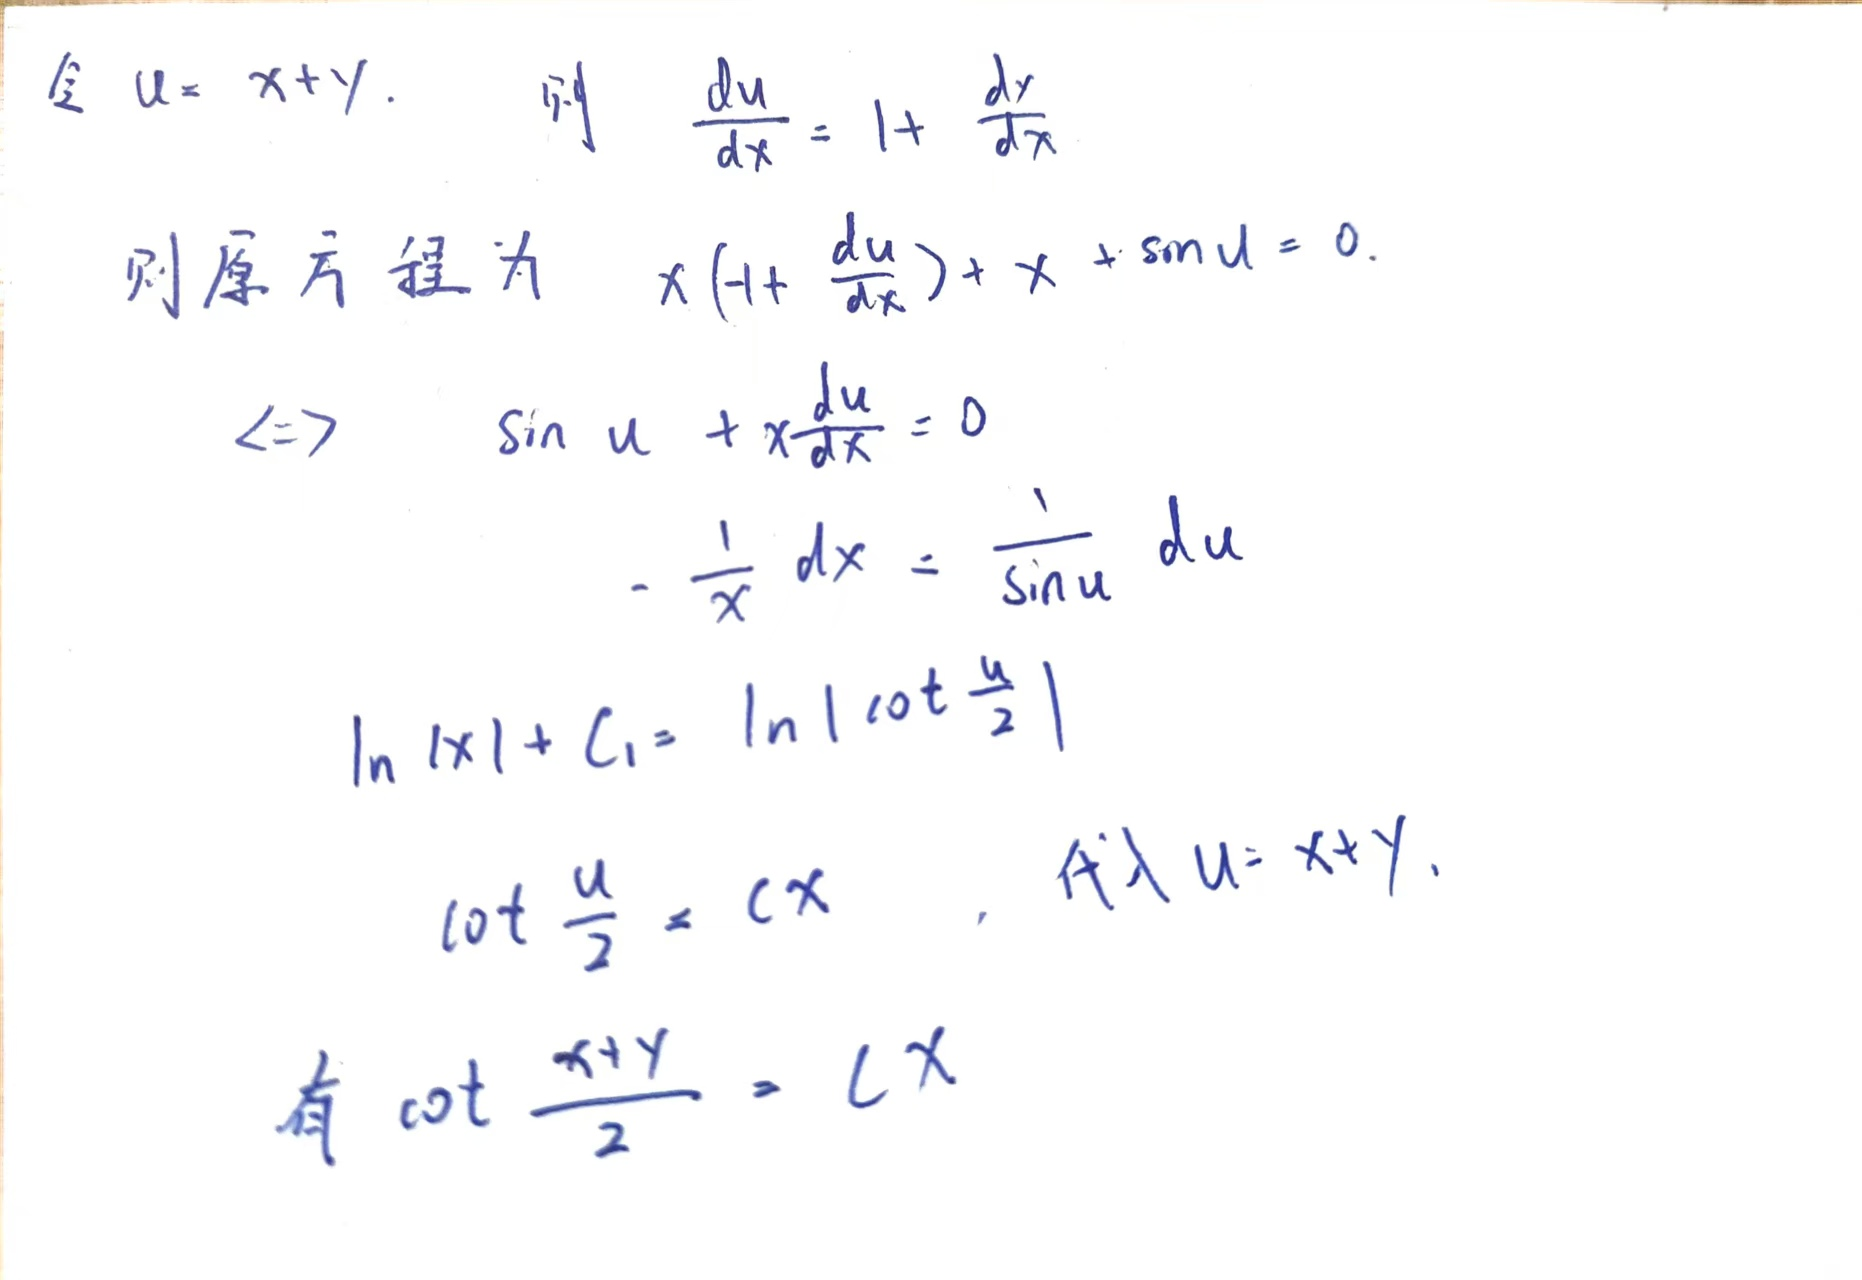 令 u = x+y. 则 du/dx = 1+ dy/dx
则原方程为 x(-1+ du/dx)+ x + sin u = 0.
<=> sin u + x du/dx = 0
- 1/x dx = 1/sin u du
ln |x| + C₁ = ln | cot u/2 |
cot u/2 = Cx , 代入 u = x+y.
有 cot (x+y)/2 = Cx